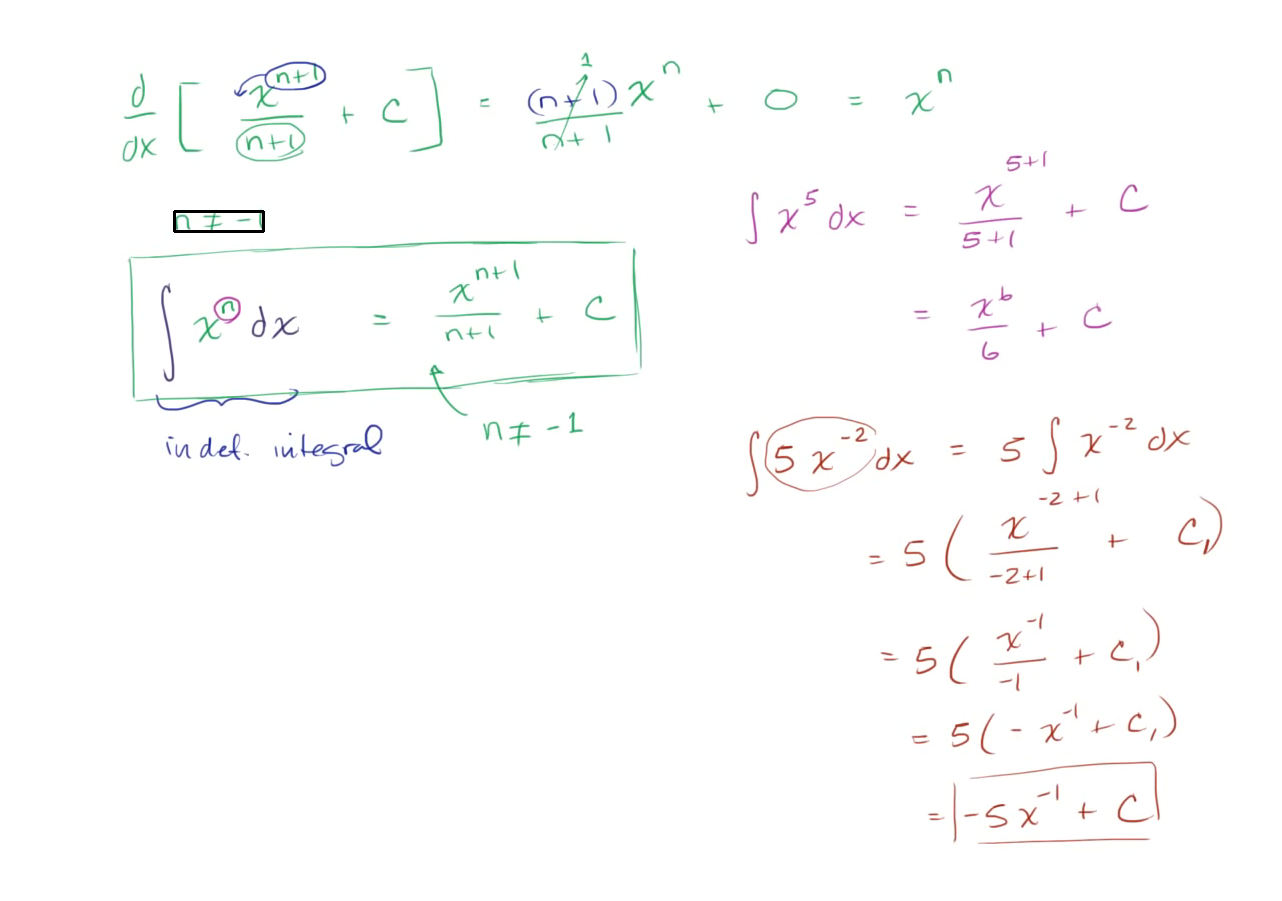 d/dx [ x^(n+1)/(n+1) + C ] = (n+1)x^n/(n+1) + 0 = x^n
1
n ≠ -1
∫ x^n dx = x^(n+1)/(n+1) + C
indef. integral
n ≠ -1
∫ x^5 dx = x^(5+1)/(5+1) + C
= x^6/6 + C
∫ 5 x^(-2) dx = 5 ∫ x^(-2) dx
= 5 ( x^(-2+1)/(-2+1) + C₁ )
= 5 ( x^(-1)/(-1) + C₁ )
= 5 ( - x^(-1) + C₁ )
= -5x^(-1) + C